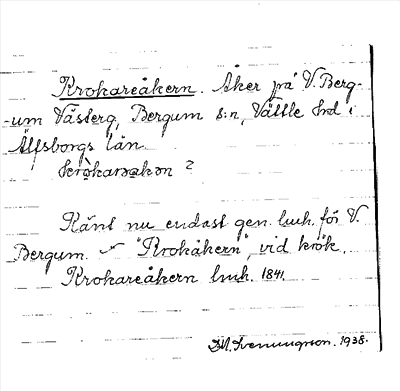 Krokareåkern. Åker på V. Berg-
-um Västerg, Bergum s:n, Vättle hrd i
Älfsborgs län.
krokarakən ?
Känt nu endast gen. lmh. för V.
Bergum. "Krokåkern", vid krök.
Krokareåkern lmh. 1841.
1938.